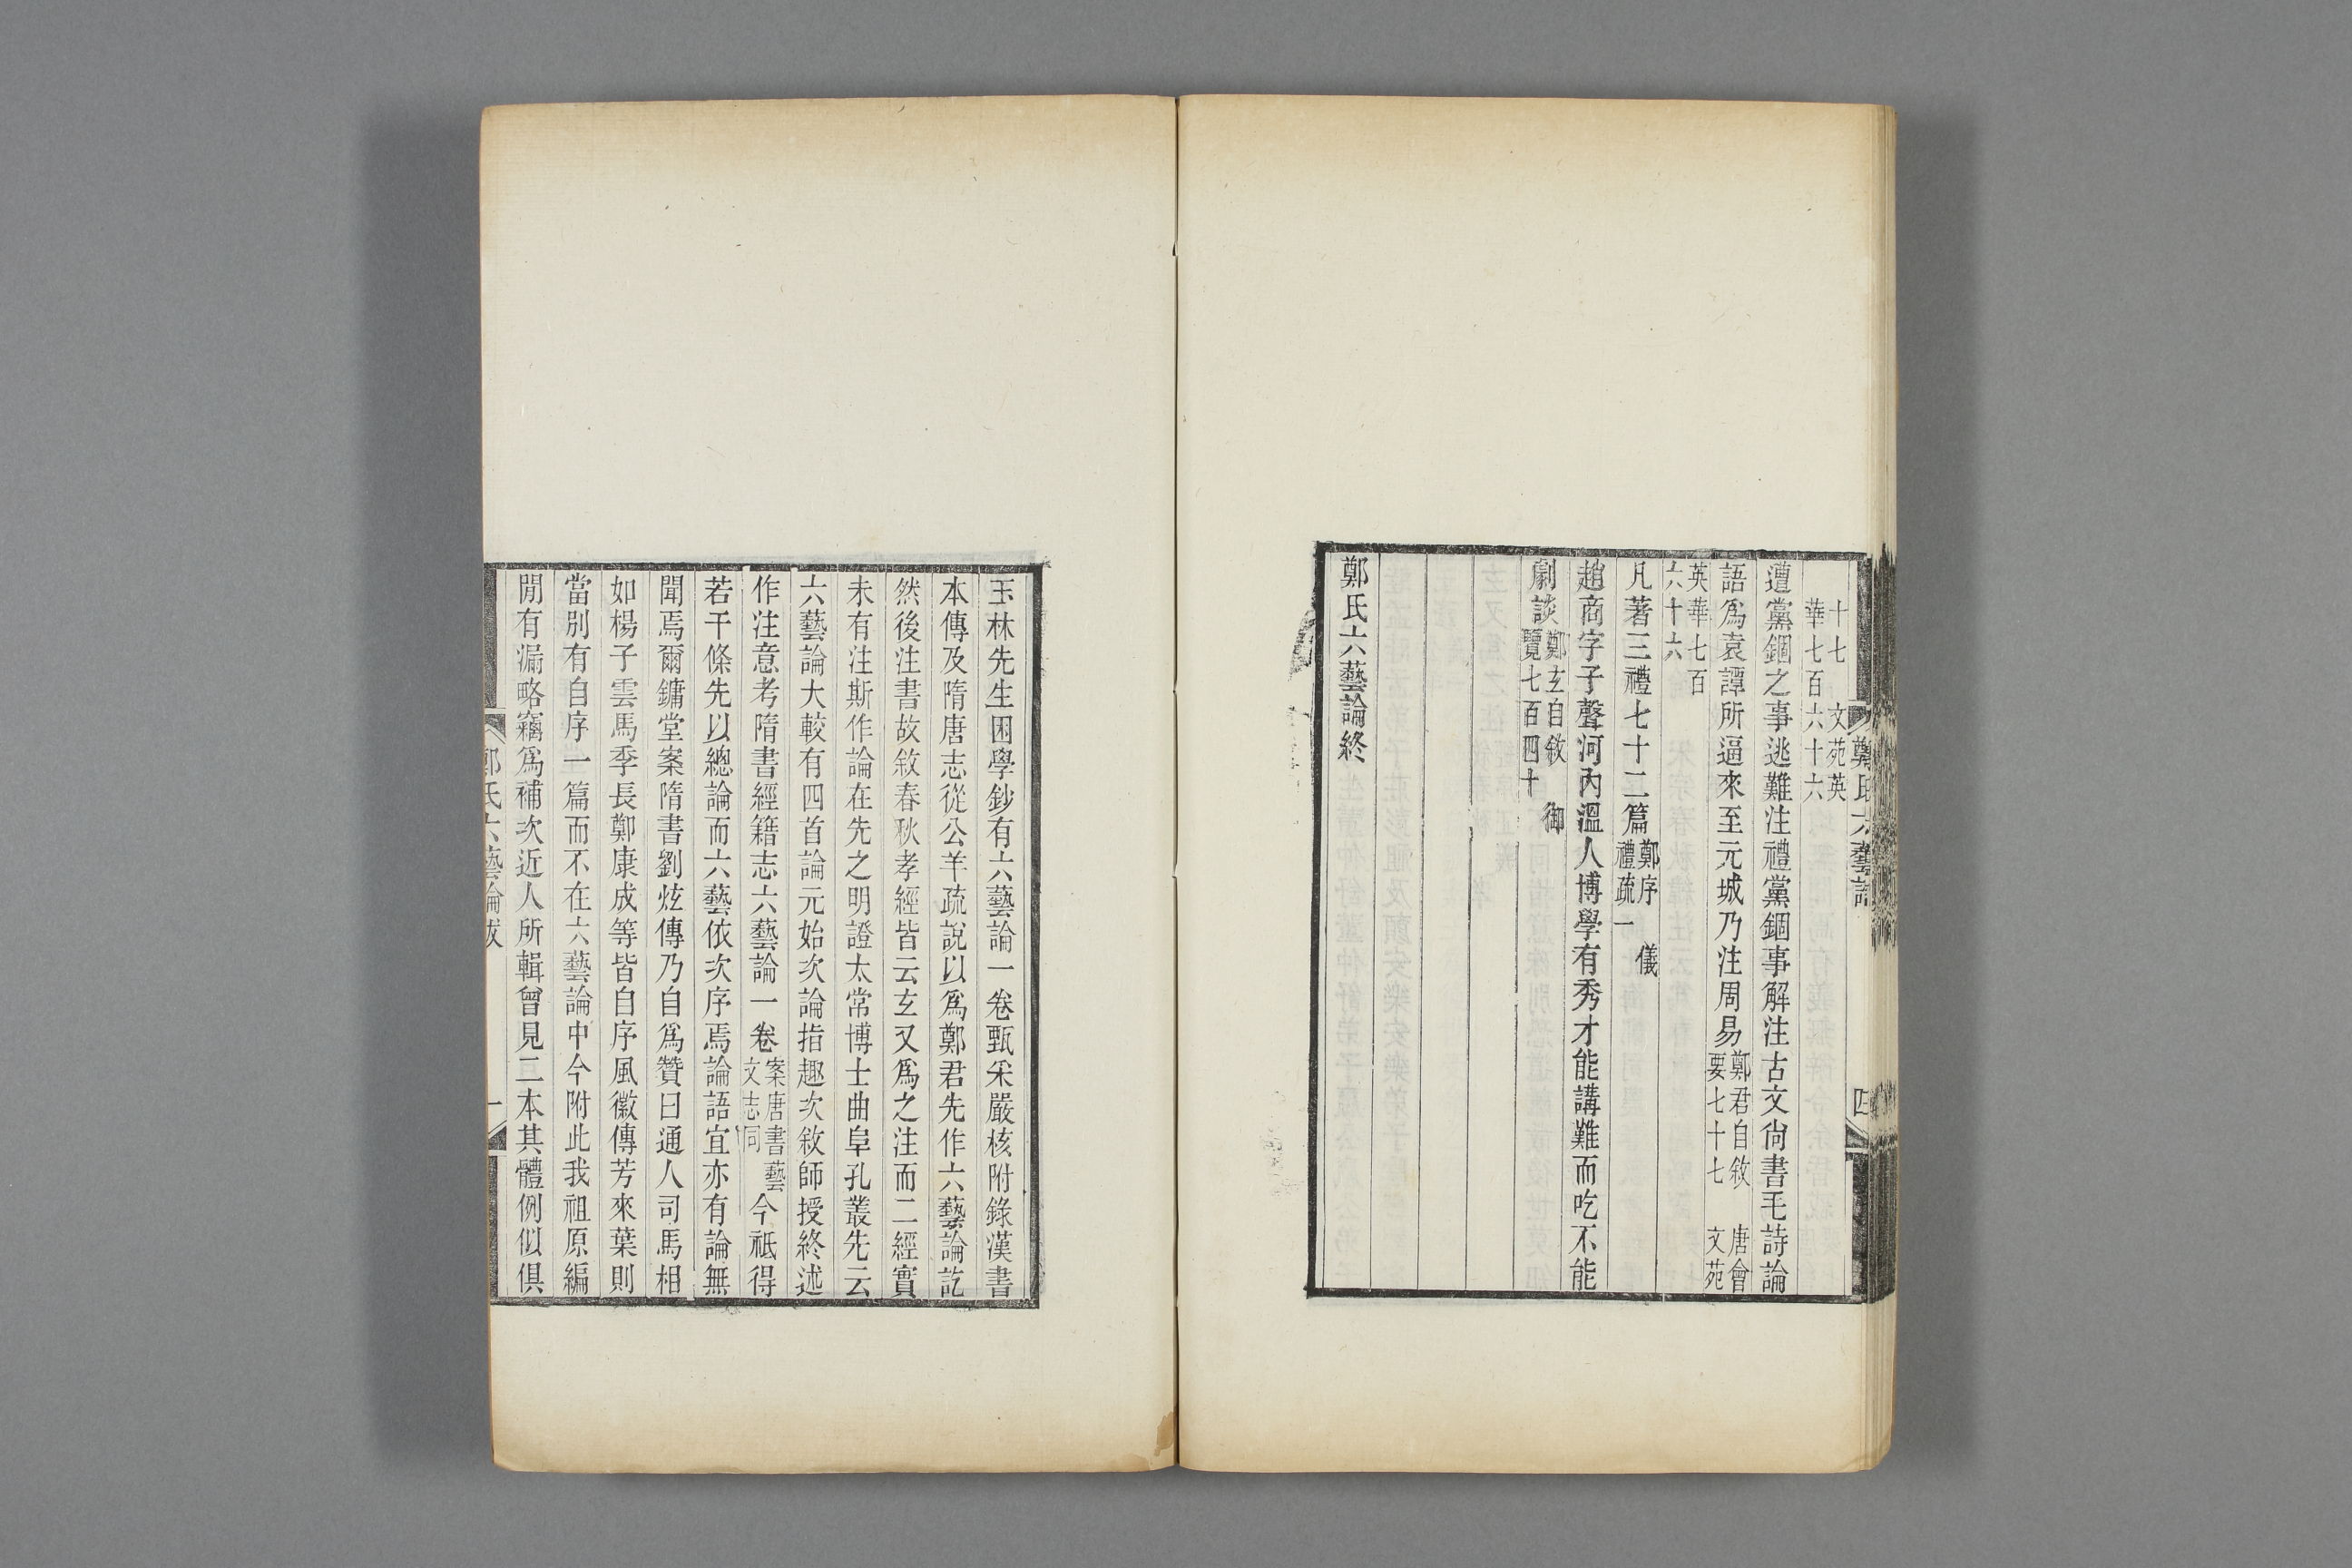 十七　文苑英
華七百六十六
遭黨錮之事逃難注禮黨錮事解注古文尙書毛詩論
語爲袁譚所逼來至元城乃注周易鄭君自敘　唐會
要七十七　文苑
英華七百
六十六
凡著三禮七十二篇鄭序　儀
禮疏一
趙商字子聲河內溫人博學有秀才能講難而吃不能
劇談鄭玄自敘　御
覽七百四十
鄭氏六藝論終
鄭氏六藝論
四
玉林先生困學鈔有六藝論一卷甄采嚴核附錄漢書
本傳及隋唐志從公羊疏說以爲鄭君先作六藝論訖
然後注書故敘春秋孝經皆云玄又爲之注而二經實
未有注斯作論在先之明證太常博士曲阜孔叢先云
六藝論大較有四首論元始次論指趣次敘師授終述
作注意考隋書經籍志六藝論一卷案唐書藝
文志同今祗得
若干條先以總論而六藝依次序焉論語宜亦有論無
聞焉爾鏞堂案隋書劉炫傳乃自爲贊曰通人司馬相
如楊子雲馬季長鄭康成等皆自序風徽傳芳來葉則
當別有自序一篇而不在六藝論中今附此我祖原編
閒有漏略竊爲補次近人所輯曾見二本其體例似俱
鄭氏六藝論跋
一